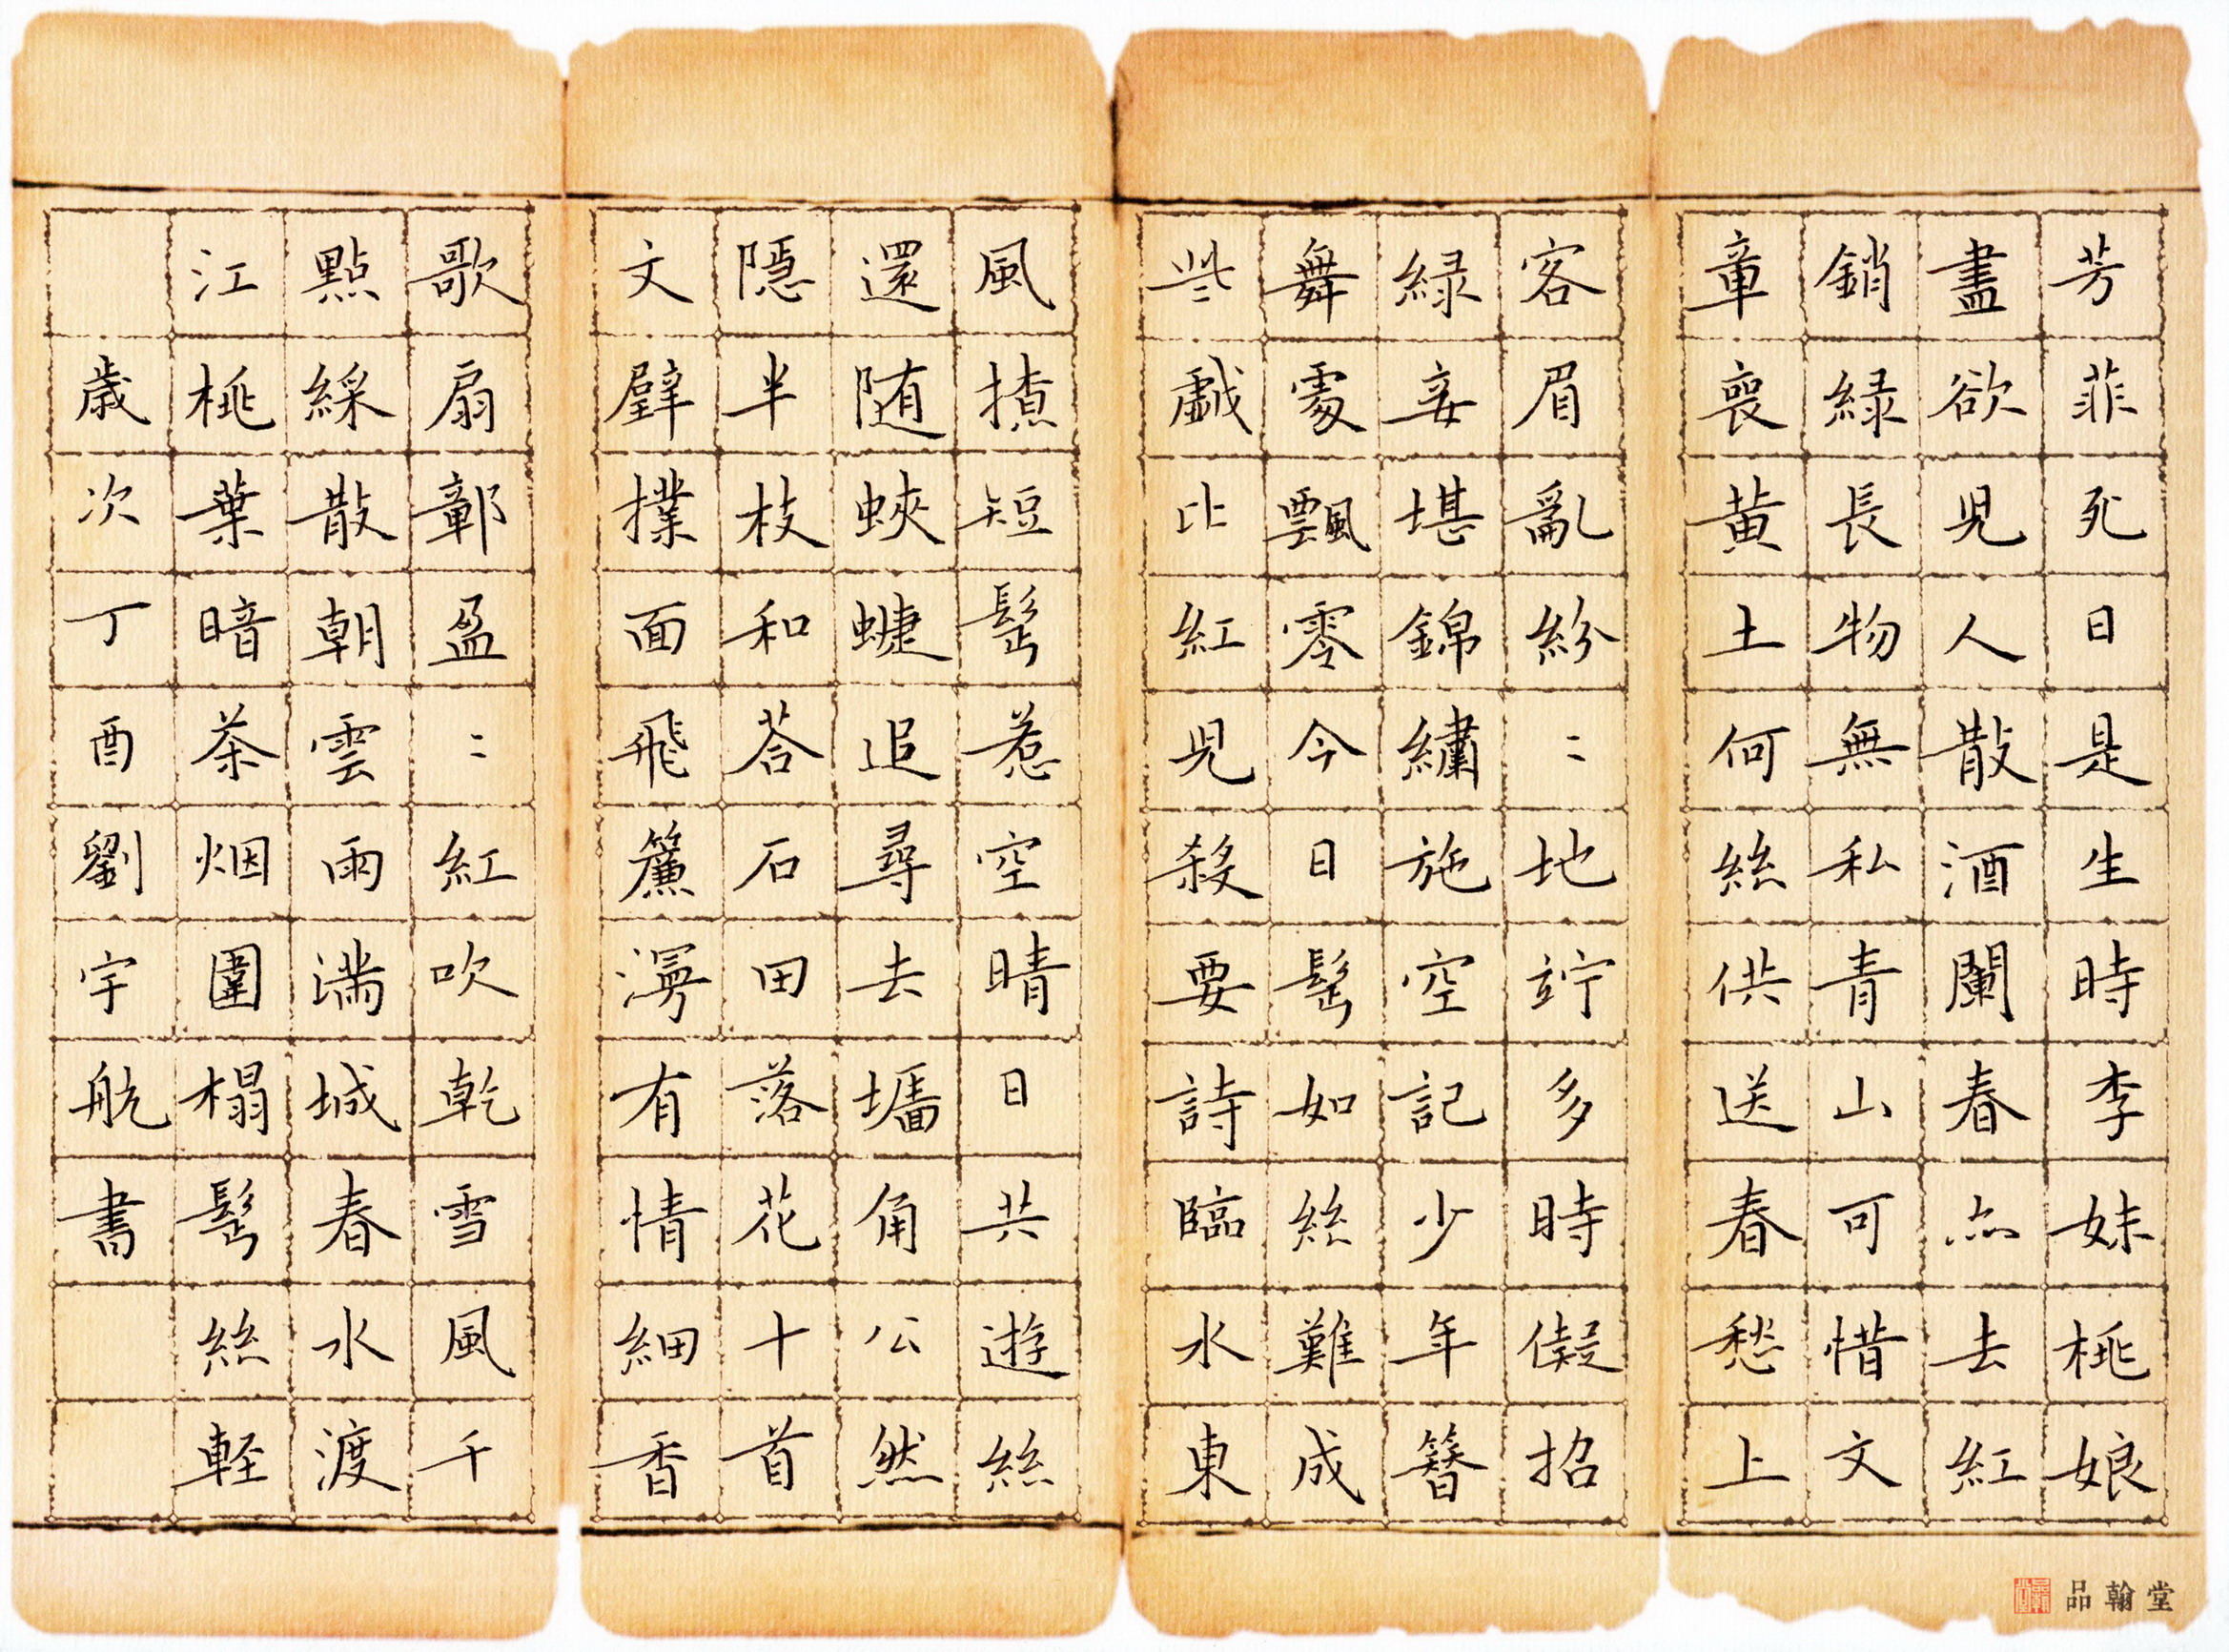 芳菲死日是生時李妹桃娘
盡欲兒人散酒闌春亦去紅
銷緑長物無私青山可惜文
章喪黄土何絲供送春愁上
客眉亂紛〻地竚多時儗招
緑妾堪錦繡施空記少年簪
舞處飄零今日髩如絲難成
些戲比紅兒殺要詩臨水東
風揸短髩惹空晴日共遊絲
還随蛺蜨追尋去墻角公然
隱半枝和荅石田落花十首
文壁撲面飛簾漫有情細香
歌扇鄣盈〻紅吹乾雪風千
點綵散朝雲雨滿城春水渡
江桃葉暗茶烟圍榻髩絲軽
歲次丁酉劉宇航書
品翰堂